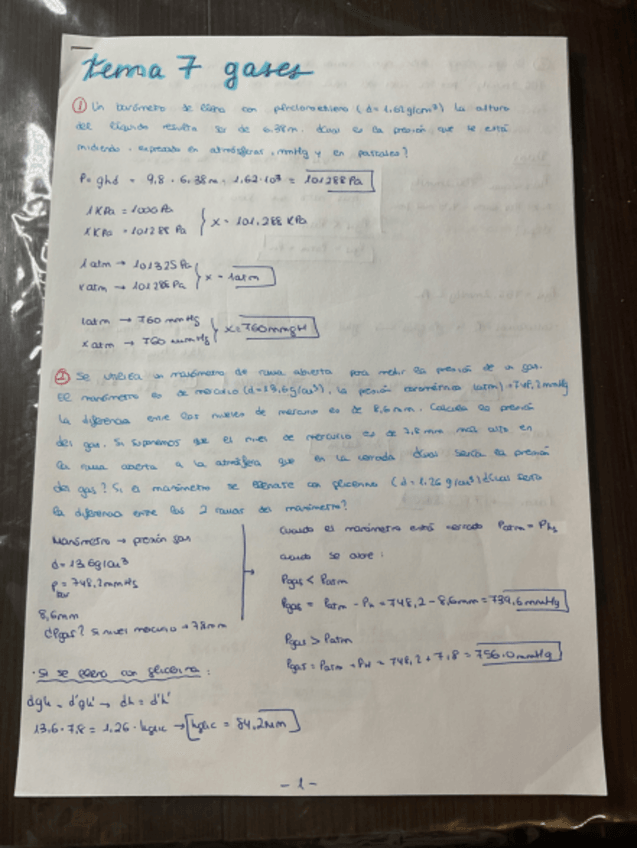 tema 7 gases
① Un barómetro se llena con percloroetileno (d = 1,62g/cm³) La altura
del líquido resulta ser de 6.38m. ¿Cuál es la presión que le está
midiendo, expresada en atmósferas, mmHg y en pascales?
P = ghd = 9,8 · 6,38m · 1,62·10³ = 101288Pa
1KPa = 1000 Pa
xKPa = 101288 Pa } x = 101,288 KPa
1 atm → 101325Pa
x atm → 101288Pa } x = 1atm
1atm → 760 mmHg
x atm → 760 mmHg } x = 760mmgH
② Se utiliza un manómetro de rama abierta para medir la presión de un gas.
El manómetro es de mercurio (d=13,6g/cm³), la presión barométrica (atm) = 748,2mmHg
La diferencia entre los niveles de mercurio es de 8,6mm. Calcula la presión
del gas. Si suponemos que el nivel de mercurio es de 7,8 mm más alto en
la rama abierta a la atmósfera que en la cerrada ¿Cuál sería la presión
del gas? Si el manómetro se llenase con glicerina (d=1.26 g/cm³) ¿Cuál sería
la diferencia entre las 2 ramas del manómetro?
Manómetro → presión gas
d = 13.6g/cm³
P bar = 748,2mmHg
8,6mm
¿Pgas? si nivel mercurio → 7.8mm
Cuando el manómetro está cerrado Patm = PHg
cuando se abre:
Pgas < Patm
Pgas = Patm - PH = 748,2 - 8,6mm = 739,6 mmHg
Pgas > Patm
Pgas = Patm + PH = 748,2 + 7,8 = 756.0mmHg
· Si se llena con glicerina:
dgh = d'gh' → dh = d'h'
13,6 · 7,8 = 1,26 · hglic → [hglic = 84,2mm]
- 1 -